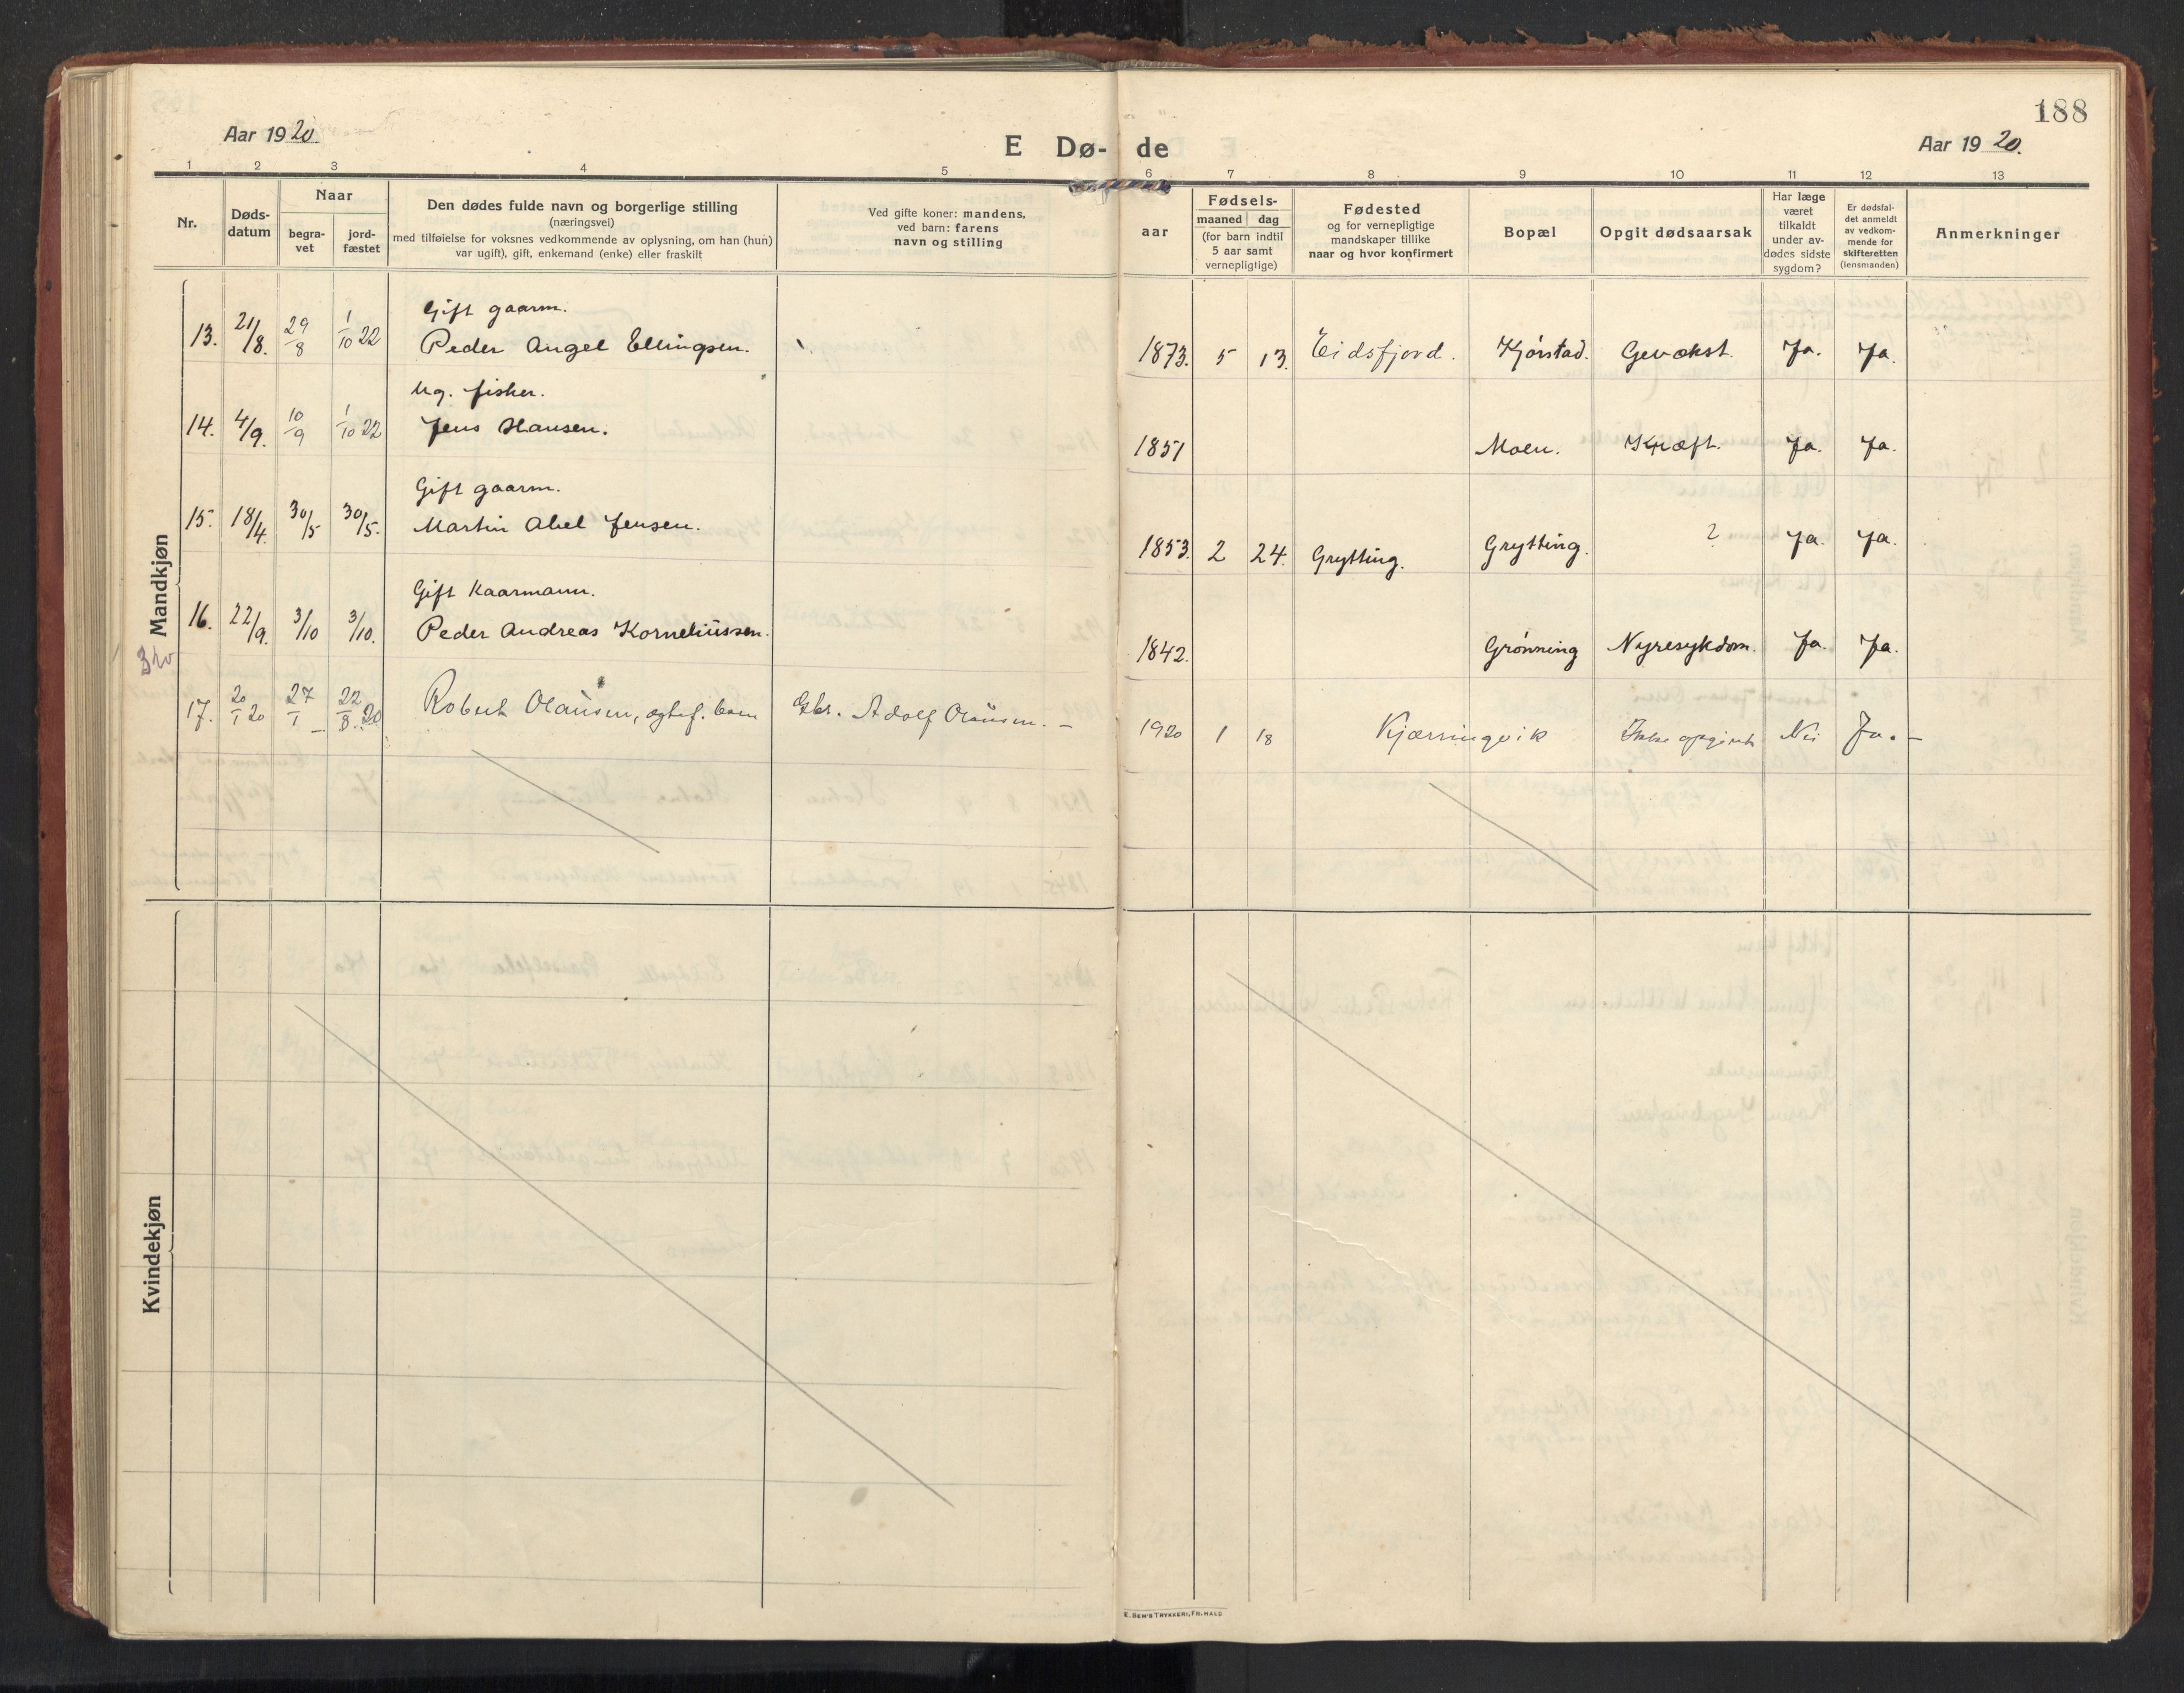 188
Aar 1920.
E Dø- de
Aar 1920.
1 2 3 4 5 6 7 8 9 10 11 12 13
Nr.
Døds-
datum
Naar
begra-
vet
jord-
fæstet
Den dødes fulde navn og borgerlige stilling
(næringsvei)
med tilføielse for voksnes vedkommende av oplysning, om han (hun)
var ugift), gift, enkemand (enke) eller fraskilt
Ved gifte koner: mandens,
ved barn: farens
navn og stilling
aar
Fødsels-
maaned dag
(for barn indtil
5 aar samt
vernepligtige)
Fødested
og for vernepligtige
mandskaper tillike
naar og hvor konfirmert
Bopæl
Opgit dødsaarsak
Har læge
været
tilkaldt
under av-
dødes sidste
sygdom?
Er dødsfal-
det anmeldt
av vedkom-
mende for
skifteretten
(lensmanden)
Anmerkninger
Mandkjøn
Gift gaarm.
13. 21/8. 29/8 1/10 22 Peder Angel Ellingsen. 1873. 5 13. Eidsfjord. Kjørstad. Gevækst. Ja. Ja.
Ug. fisker.
14. 4/9. 10/9 1/10 22 Jens Hansen. 1851 Moen. Kræft. Ja. Ja.
Gift gaarm.
15. 18/4. 30/5 30/5. Martin Abel Jensen. 1853. 2 24. Grytting. Grytting. ? Ja. Ja.
Gift Kaarmann.
16. 22/9. 3/10 3/10. Peder Andreas Korneliussen. 1842. Grønning Nyresykdom. Ja. Ja.
17. 20/1 20 27/1 – 22/8. 20 Robert Olausen, ægtef. barn Gbr. Adolf Olausen. – 1920 1 18 Kjærringvik Ikke opgivet Nei Ja. –
Kvindekjøn
E. SEM'S TRYKKERI, FR.HALD